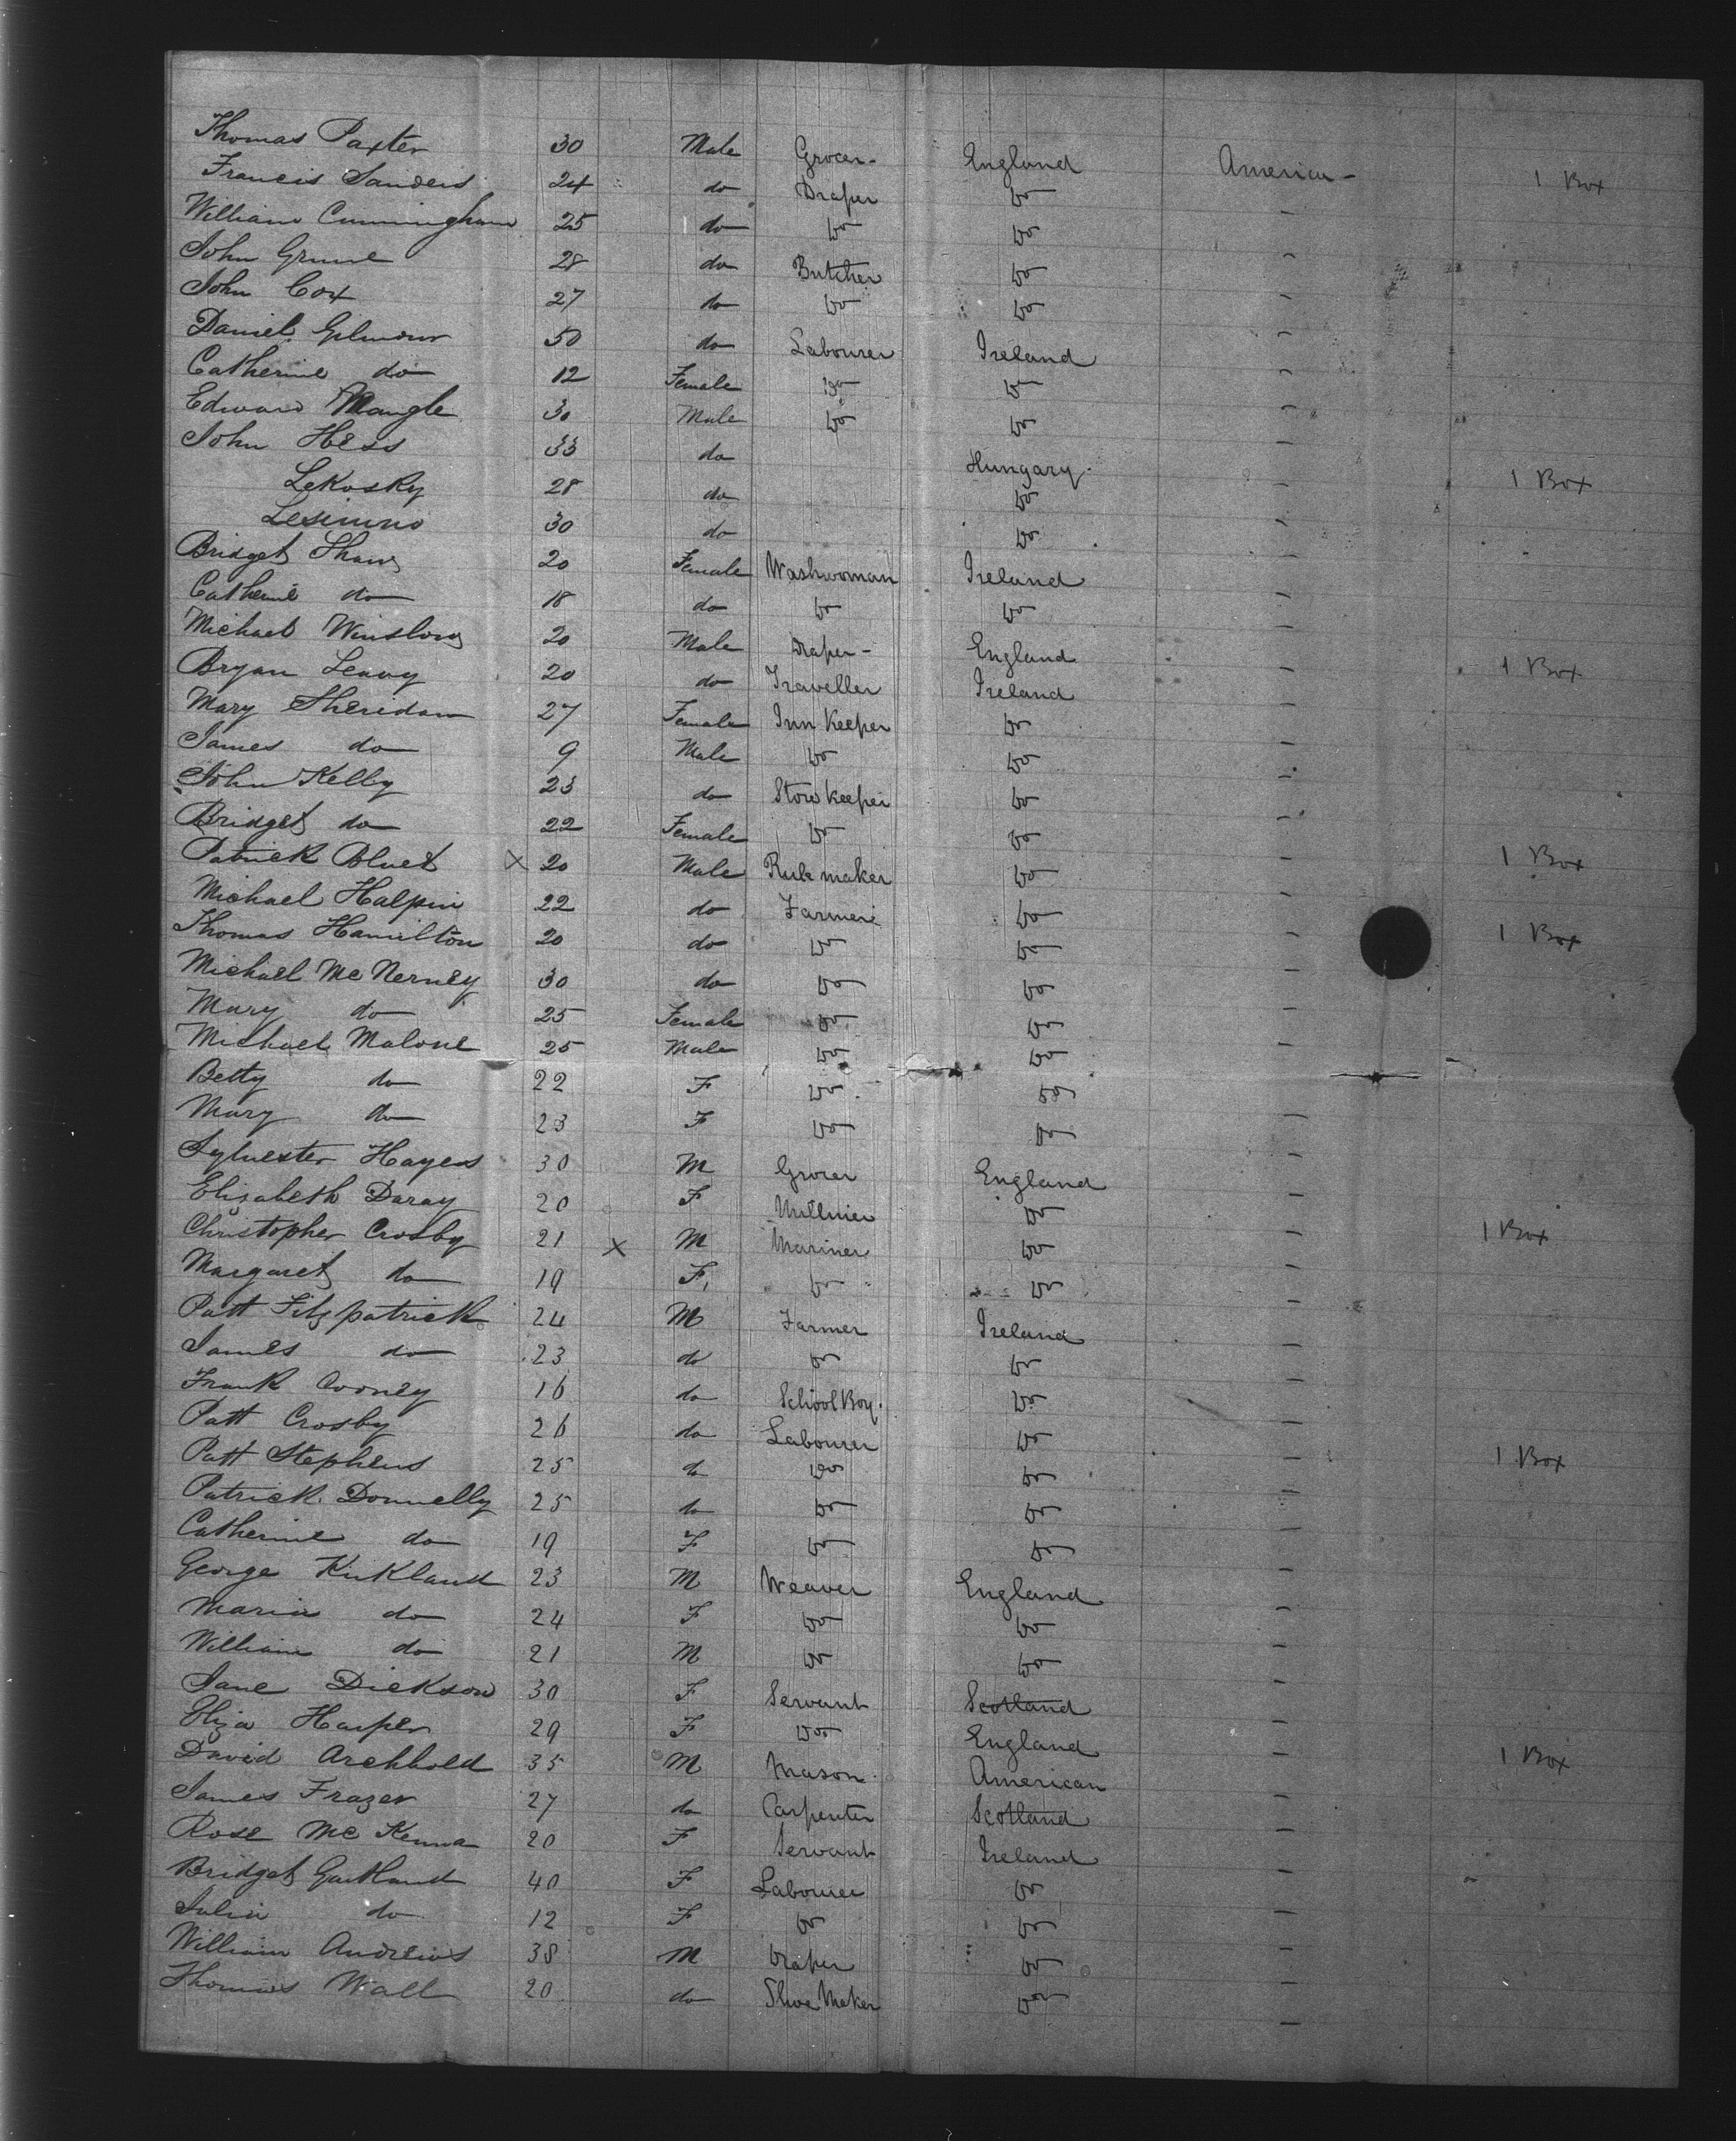 Thomas Paxter 30 Male Grocer - England American - 1 Box
Francis Sanders 24 do Draper Do -
William Cunningham 25 do Do Do -
John 28 do Butcher Do -
John Cox 27 do Do Do -
Daniel Gilmour 50 do Labourer Ireland -
Catherine do 12 Female Do Do -
Edward Mangle 30 Male Do Do -
John Hess 33 do Hungary - 1 Box
LeKosky 28 do Do -
30 do Do -
Bridget Shaw 20 Female Washwoman Ireland -
Catherine do 18 do Do Do -
Michael Winslow 20 Male Draper - England - 1 Box
Bryan Leavy 20 do Traveller Ireland -
Mary Sheridan 27 Female Inn Keeper Do -
James do 9 Male Do Do -
John Kelly 23 do Store Keeper Do -
Bridget do 22 Female Do Do -
Patrick X 20 Male Rule maker Do - 1 Box
Michael Halpin 22 do Farmer Do -
Thomas Hamilton 20 do Do Do - 1 Box
Michael McNerney 30 do Do Do -
Mary do 25 Female Do Do -
Michael Malone 25 Male Do Do -
Betty do 22 F Do Do
Mary do 23 F Do Do -
Sylvester Hayes 30 M Grocer England -
Elizabeth Daray 20 F Milliner Do -
Christopher Crosby 21 X M Mariner Do - 1 Box
Margaret do 19 F Do Do -
Patt Fitzpatrick 24 M Farmer Ireland -
James do 23 do Do Do -
Frank Cooney 16 do School Boy. Do -
Patt Crosby 26 do Labourer Do -
Patt Stephens 25 do Do Do - 1 Box
Patrick Donnelly 25 do Do Do -
Catherine do 19 F Do Do -
George Kirkland 23 M Weaver England -
Maria do 24 F Do Do -
William do 21 M Do Do -
Jane Dickson 30 F Servant Scotland -
Eliza Harper 29 F Do England -
David Archbold 35 M Mason American - 1 Box
James Frazer 27 do Carpenter Scotland -
Rose McKenna 20 F Servant Ireland -
Bridget Gartland 40 F Labourer Do -
Julia do 12 F Do Do -
William Andrews 38 M Draper Do -
Thomas Wall 20 do Shoe Maker Do -